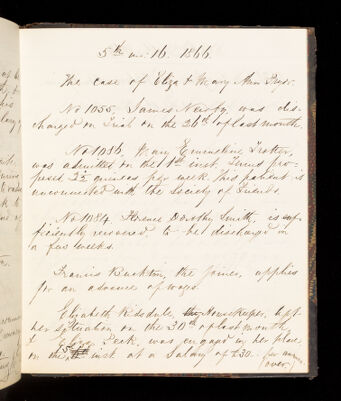 5th mo: 16. 1866.
The case of Eliza & Mary Ann Pryor.
No 1055, James Newby was dis-
charged on Trial on the 26th of last month.
No 1086, Emmeline Trotter,
was admitted on the 1st inst. Terms pro-
posed 3½ guineas per week. This patient is
unconnected with the Society of Friends.
No 1084 Florence Dorothy Smith, is suf-
ficiently recovered to be discharged in
a few weeks.
Francis Buckton, the joiner, applies
for an advance of wages.
Elizabeth Housekeeper, left
her situation on the 30th of last month,
& Peck was engaged in her place
on the inst at a Salary of £30. per annum
(over)